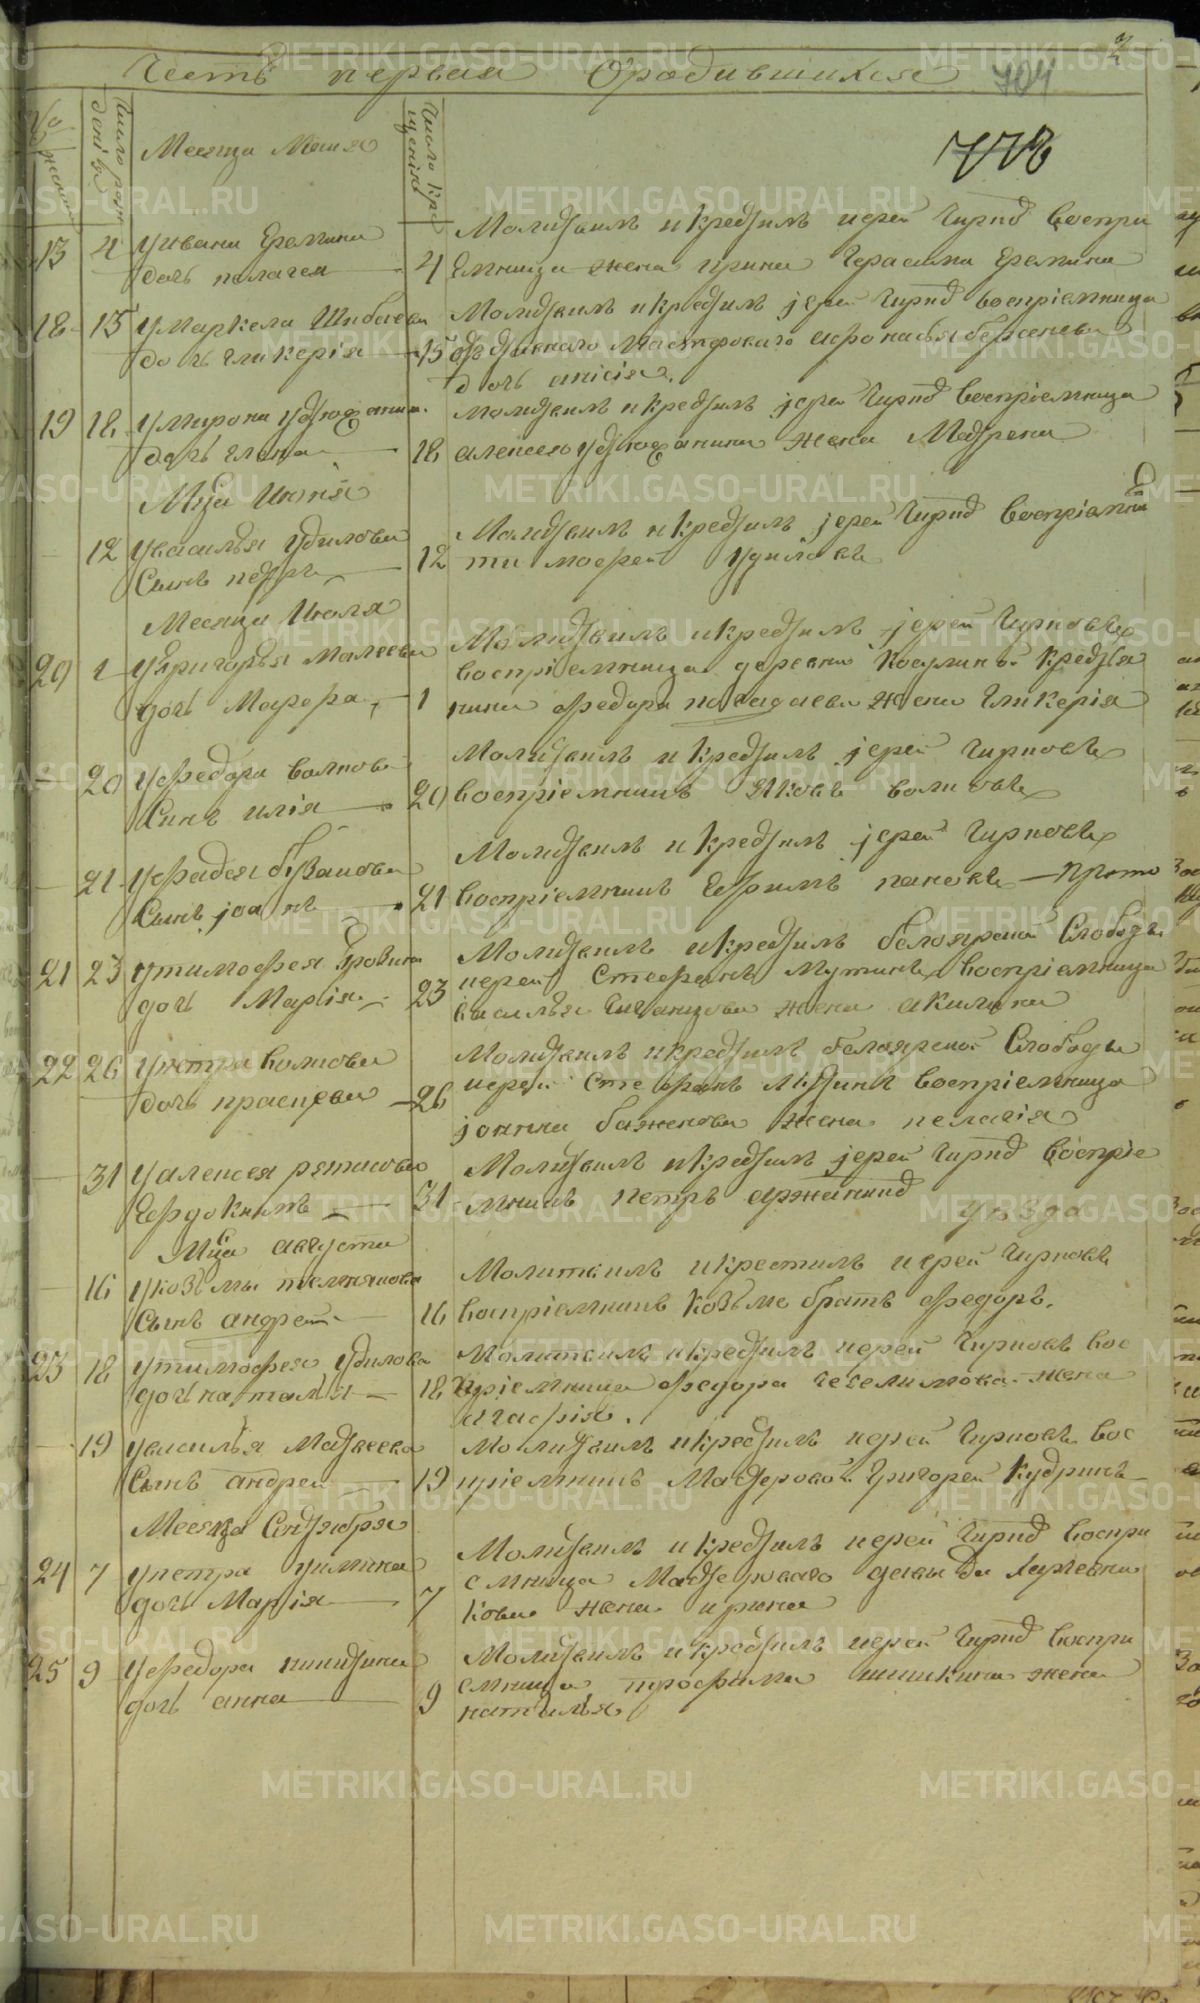 Часть первая Ородившихся
704
778
Число рож дений
Месяца Маия
Число кре щения
13 4 у ивана Еремина
дочь пелагея
4
Молитвилъ и крестилъ иерей Чирковъ воспри
емница жена ирина Герасима Еремина
18 15 у Маркела Шибаева
дочь гликерия
15
Молитвилъ и крестилъ јерей Чирковъ воспріемница
отставнаго Мастероваго афонасья баженова
дочь анисія
19 18 у мирона
дочь елена
18
молитвилъ и крестилъ јерей Чирковъ воспріемница
алексея жена Матрена
Мца Июния
12 у василья удилова
Сынъ петръ
12
Молитвилъ и крестилъ јерей Чирковъ воспріемникъ
тимофей удиловъ
Месяца Июля
20 1 у григорья Макеева
дочь Марфа
1
Молитвилъ и крестилъ јерей Чирковъ
воспріемница деревни Косулиной крестья
нина федора жена Гликерія
20 у федора волкова
Сынъ илія
20
Молитвилъ и крестилъ јерей Чирковъ
воспріемникъ яковъ волковъ
21 у фадея
Сынъ јоанъ
21
Молитвилъ и крестилъ јерей Чирковъ
воспріемникъ Ефимъ пановъ
21 23 у тимофея
дочь Марія
23
Молитвилъ и крестилъ белоярской Слободы
иерей Стефанъ Мутинъ воспріемница
василья жена акилина
22 26 у петра волкова
дочь прасковья
26
Молитвилъ и крестилъ белоярской Слободы
иерей Стефанъ Мутинъ воспріемница
јоанна баженова жена пелагія
31 у алексея
Евдокимъ
31
Молитвилъ и крестилъ јерей Чирковъ воспріе
мникъ петръ
уезда
Мца августа
16 у козьмы
Сынъ андрей
16
Молитвилъ и крестилъ иерей Чирковъ
воспріемникъ козьме братъ федоръ.
23 18 у тимофея удилова
дочь наталья
18
Молитвилъ и крестилъ иерей Чирковъ вос
пріемница федора жена
агафія.
19 у василья Матвеева
Сынъ андрей
19
Молитвилъ и крестилъ иерей Чирковъ вос
пріемникъ Мастеровой Григорей Кудринъ
Месяца Сентября
24 7 у петра
дочь Марія
7
Молитвилъ и крестилъ иерей Чирковъ воспри
емница Мастероваго давыда Харчевни
кова жена ирина
25 9 у федора никитина
дочь анна
9
Молитвилъ и крестилъ иерей Чирковъ воспри
емница трофима шишкина жена
наталья